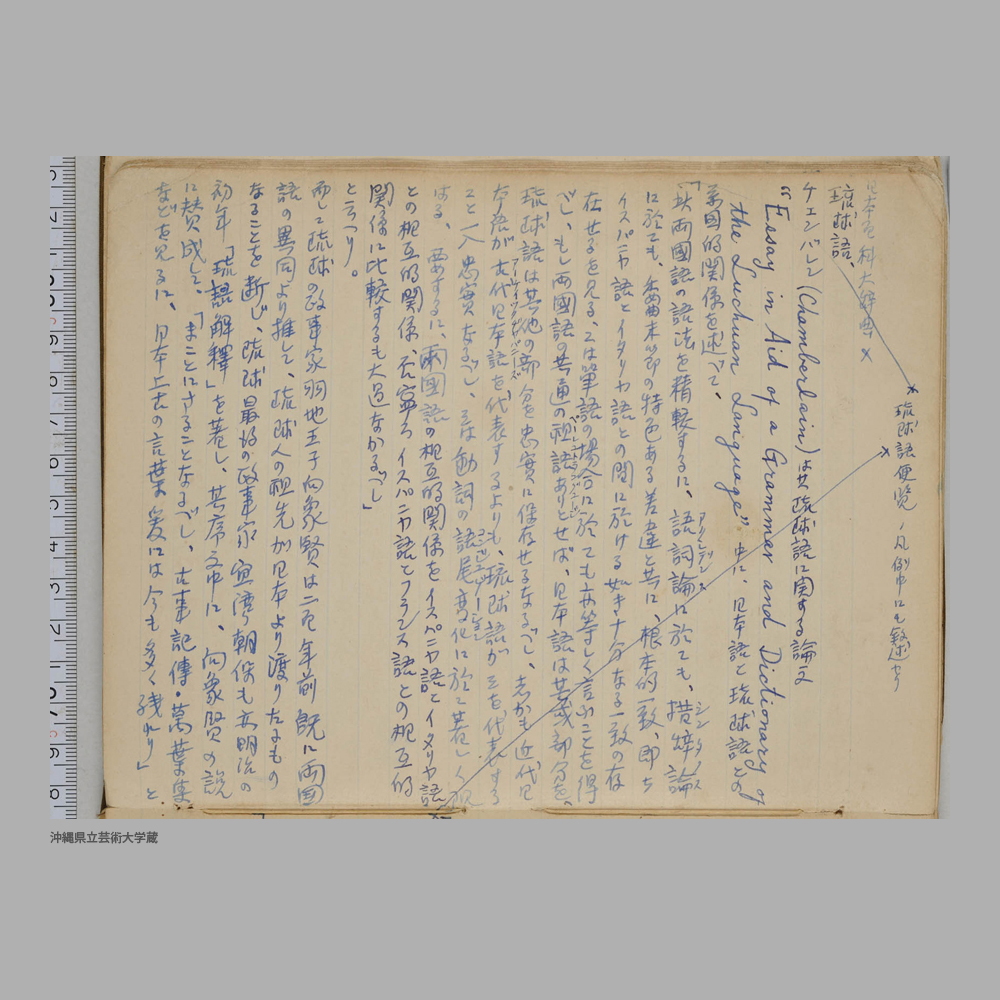 日本百科大辞典 ×
琉球語便覧ノ凡例中にも叙述せり
琉球語、
チェンバレン(Chamberlain)は其琉球語に関する論文
"Essay in Aid of a Grammar and Dictionary of
the Luchuan Language". 中に、日本語と琉球語との
系図的関係を述べて、
「此両國語の語法を精較するに、語詞論に於ても、措辞論
アクシデンス
シンタックス
に於ても、委曲末節の特色ある差違と共に根本的一致、即ち
イスパニヤ語とイタリヤ語との間に於ける如き十分なる一致の存
在せるを見る、こは單語の場合に於ても亦等しく言ふことを得
べし、もし両國語の共通の祖語ありとせば、日本語は其或部分を、
琉球語は其他の部分を忠實に保存せるなるべし、志かも近代日
本語が古代日本語を代表するよりも、琉球語が之を代表する
こと一入忠實なるべし、そは動詞の語尾変化に於て著しく現
はる、要するに、兩國語の相互的関係をイスパニヤ語とイタリヤ語
との相互的関係、否寧ろイスパニヤ語とフランス語との相互的
関係に比較するも大過なかるべし」
と云へり。
而して琉球の政事家羽地王子向象賢は二百年前既に両國
語の異同より推して、琉球人の祖先が日本より渡りたるもの
なることを断じ、琉球最後の政事家宜湾朝保も亦明治の
初年「琉語解釋」を著し、其序文中に、向象賢の説
に賛成して、「まことにさることなるべし、古事記傳・萬葉集
などを見るに、日本上古の言葉爰には今も多く残れり」と
沖縄県立芸術大学蔵